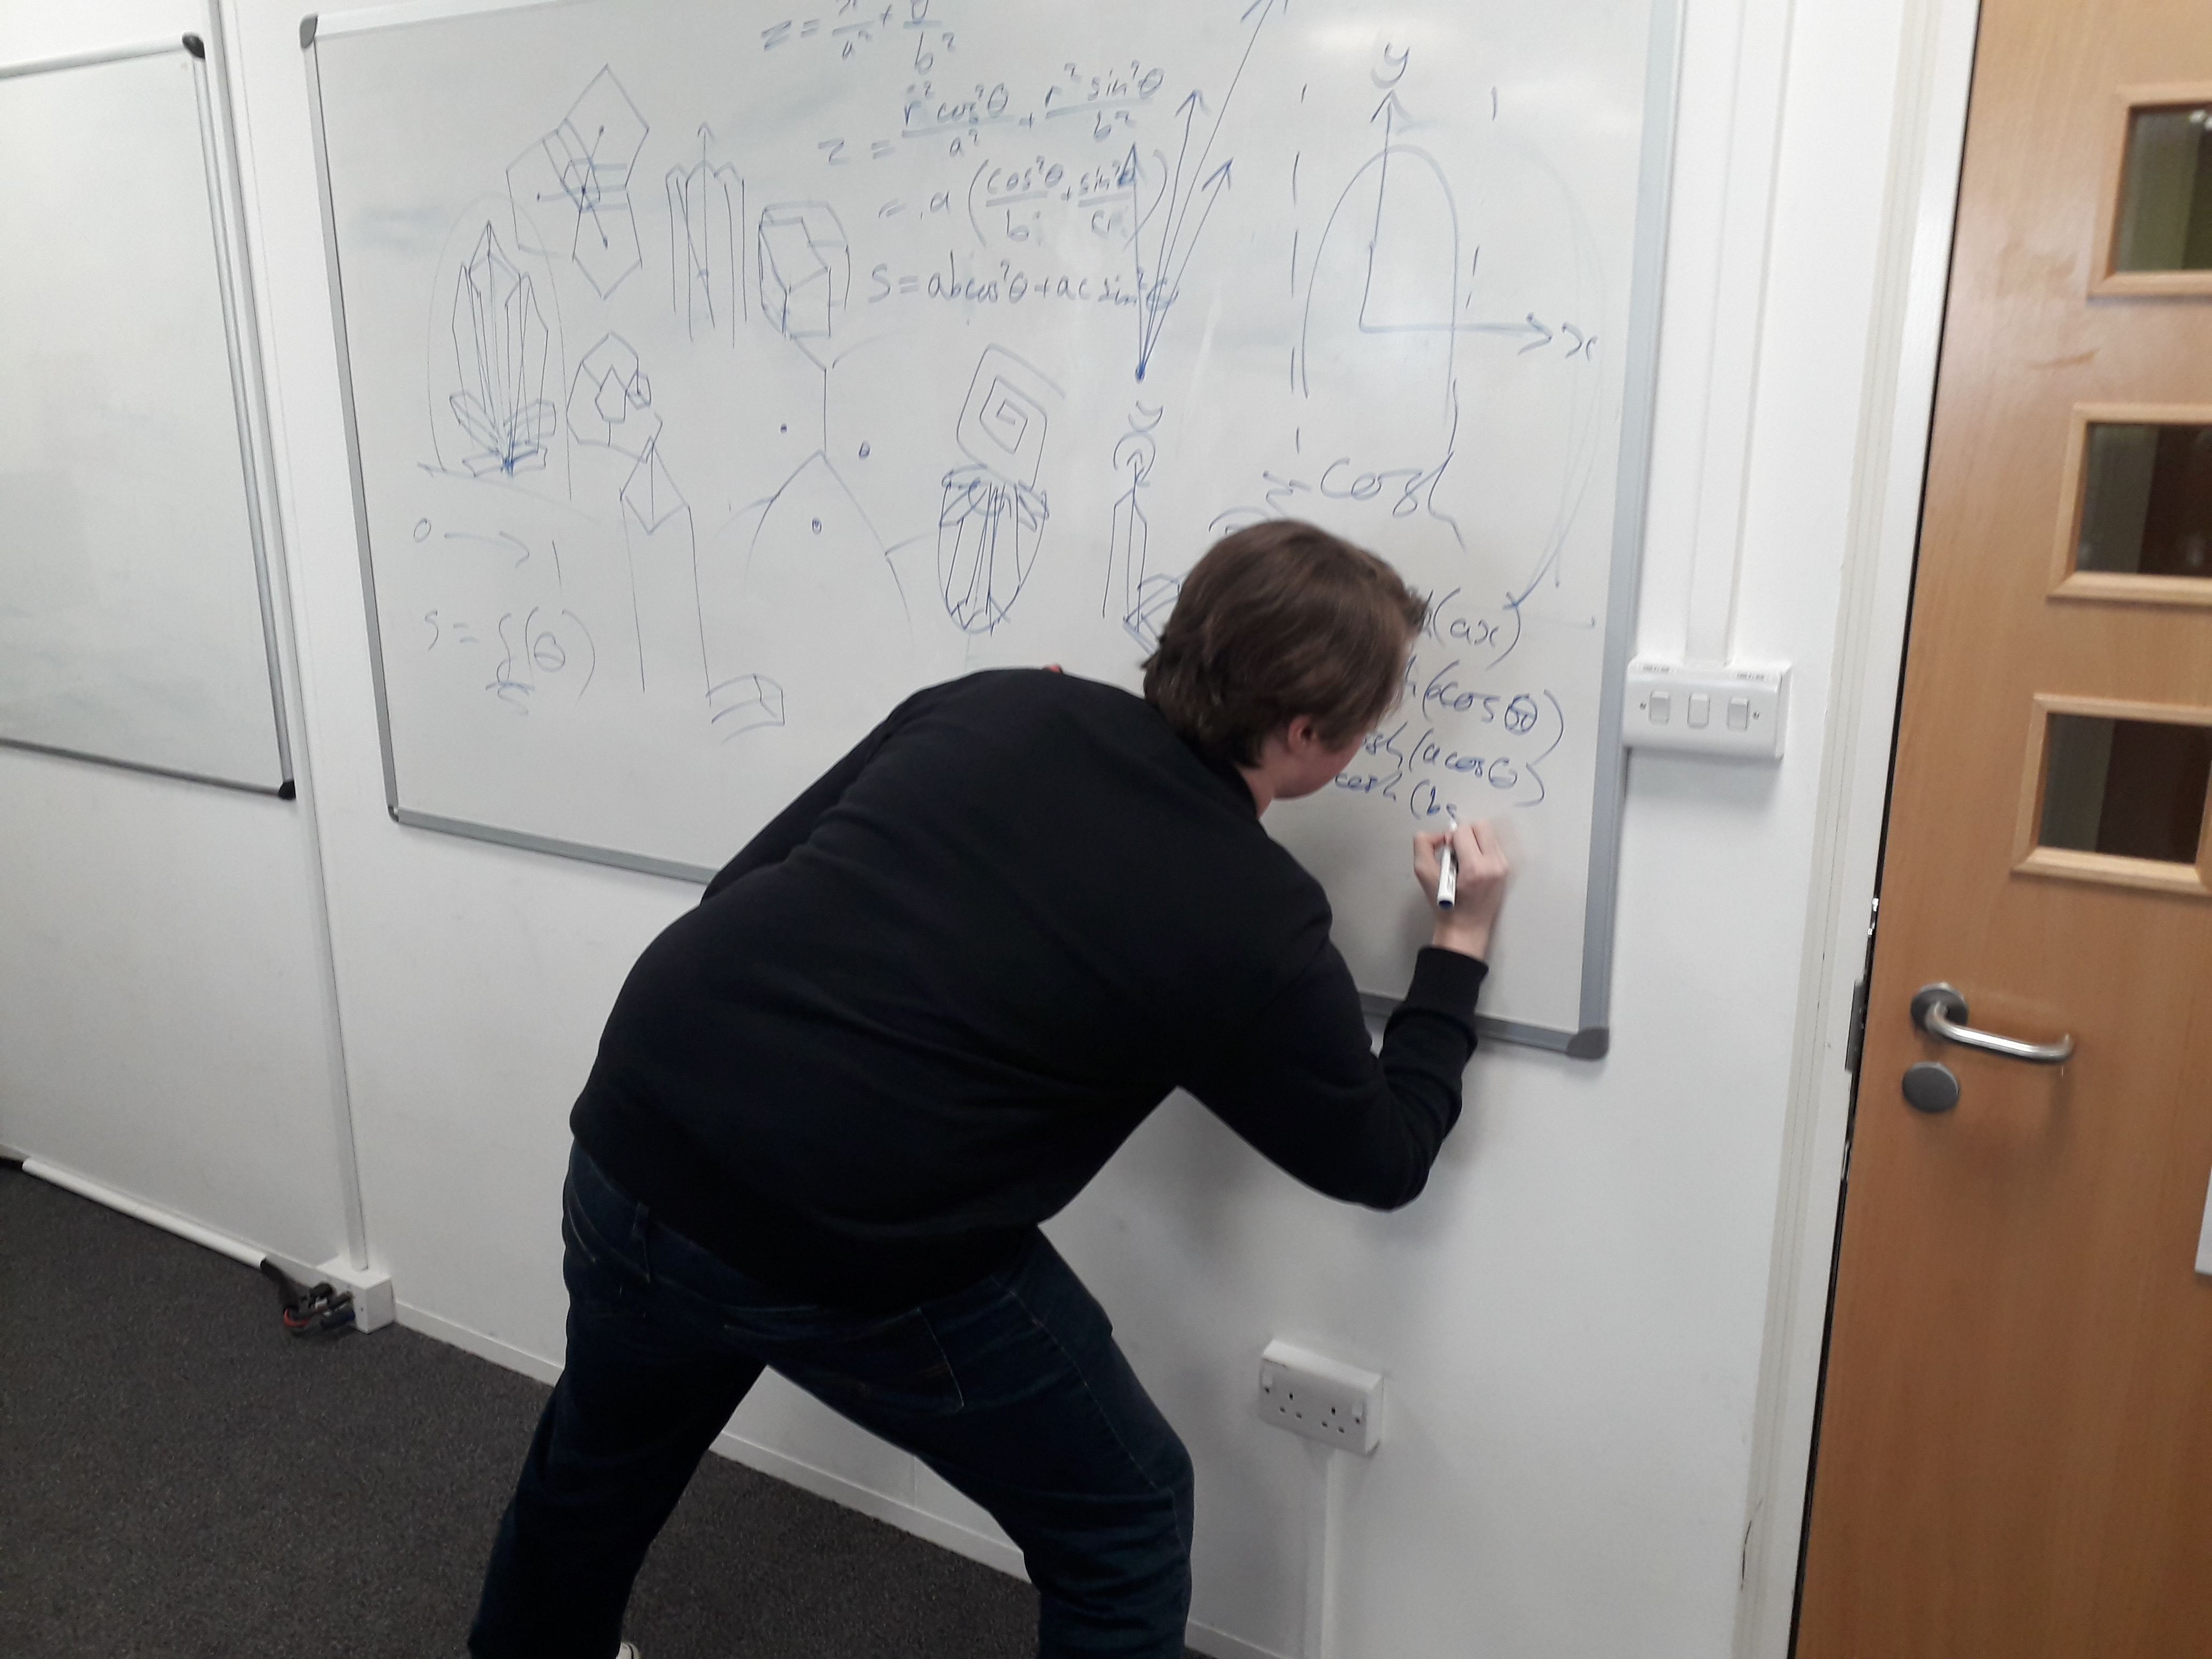 z = x²/a² + y/b²
z = r²cos²θ/a² + r²sin²θ/b²
= a(cos²θ/b + sin²θ/c)
S = abcos²θ + ac sin²θ
y
x
cosh
0 → 1
S = f(θ)
(ax)
cosθ)
cosh(acosθ)
cosh(bs